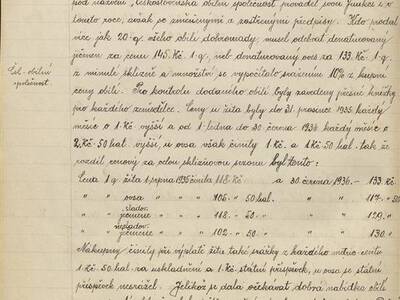 pod názvem „Československá obilní společnost" prováděl svou funkci i v
tomto roce, avšak po změněných a zostřených předpisy. Kdo prodal
více jak 20 q zrněho obilí dobrovolně, musel odebrat denaturovaný
ječmen za cenu 145 Kč 1 q. neb denaturovaný oves za 133 Kč 1 q.
z minulé sklizně a množství se vypočítalo sražením 10% z kupní
Čsl. obilní
společnost.
ceny obilí. Pro kontrolu dodaného obilí byly zavedeny přesné knížky
pro každého zemědělce. Ceny u žita byly do 31 prosince 1935 každý
měsíc o 1 Kč vyšší a od 1 ledna do 30 června 1936 každý měsíc o
2 Kč 50 hal. vyšší, u ovsa však činily 1 Kč a 1 Kč 50 hal. tak že
rozdíl cenový za celou sklizňovou sezonu byl tento:
Cena 1 q. žita 1 srpna 1935 činila 118 Kč a 30 června 1936 – 133 Kč
" " ovsa " 105 " 50 hal. " " 117 " 50
" " slador. ječmene " 118 " 50 " " " 129 "
" " nesladov. ječmene " 102 " 50 " " " 130 "
Nákupny činily při výplatě žita také srážky z každého metr. centu
1 Kč 50 hal. na uskladnění a 1 Kč státní příspěvek, u ovsa se státní
příspěvek nesrážel. Jelikož se dala očekávat dobrá nabídka obilí